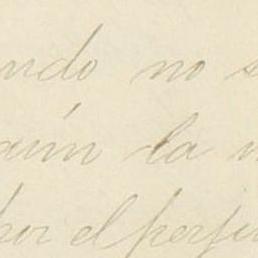 ndo no s
aún la
por el perfi